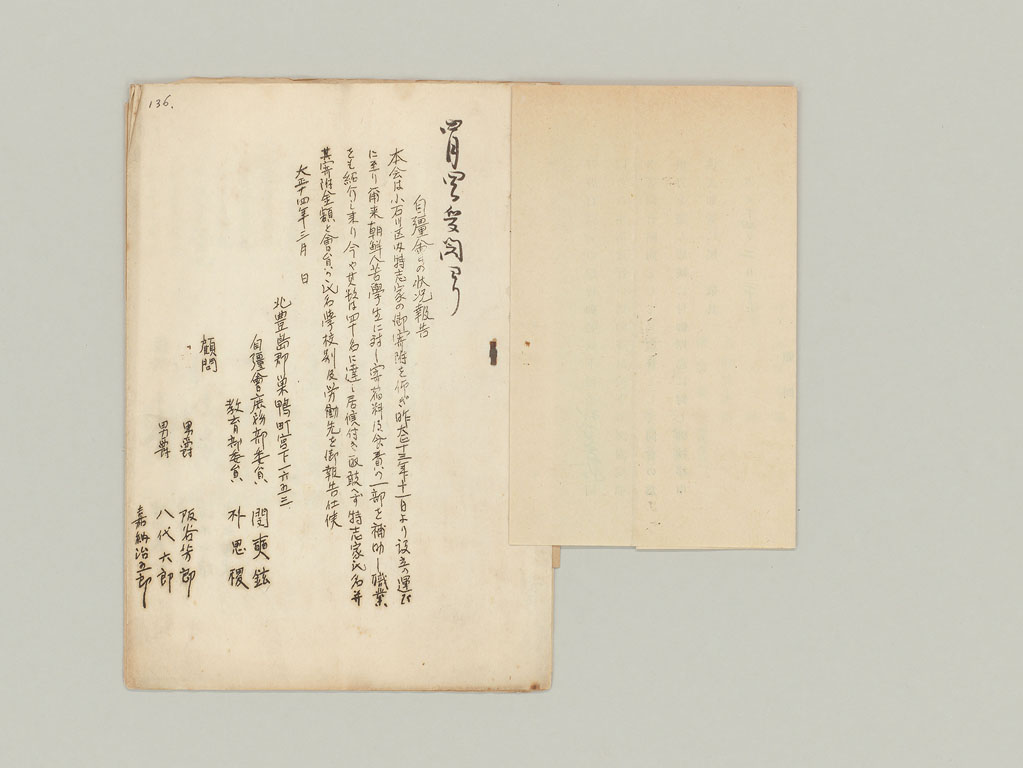 136.
自彊会の状況報告
本会は小石川区内特志家の御寄附を仰ぎ昨大正十三年十一月一日より設立の運び
に至り爾来朝鮮人苦学生に対し寄宿料及食費の一部を補助し職業
をも紹介し来り今や其数は四十名に達し居候付き取敢へず特志家氏名并
其寄附金額と會員の氏名学校別及労働先を御報告仕候
大正十四年三月 日
北豊島郡巣鴨町宮下一六五三
自彊會庶務部委員 閔奭鉉
教育部委員 朴思稷
顧問
男爵 阪谷芳郎
男爵 八代六郎
嘉納治五郎